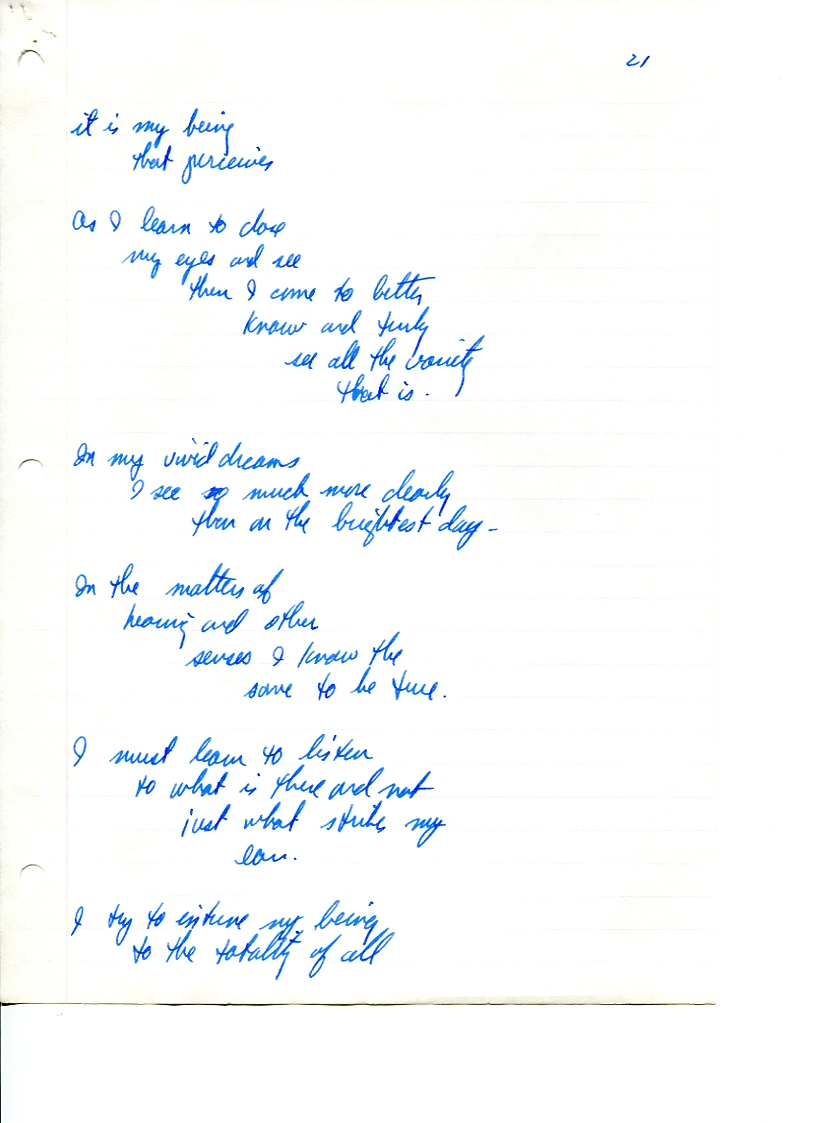 21
it is my being
that perceives
As I learn to close
my eyes and see
then I come to better
know and truly
see all the variety
that is.
In my vivid dreams
I see so much more clearly
then on the brightest day -
In the matters of
hearing and other
senses I know the
same to be true.
I must learn to listen
to what is there and not
just what strikes my
ear.
I try to intune my being
to the totality of all